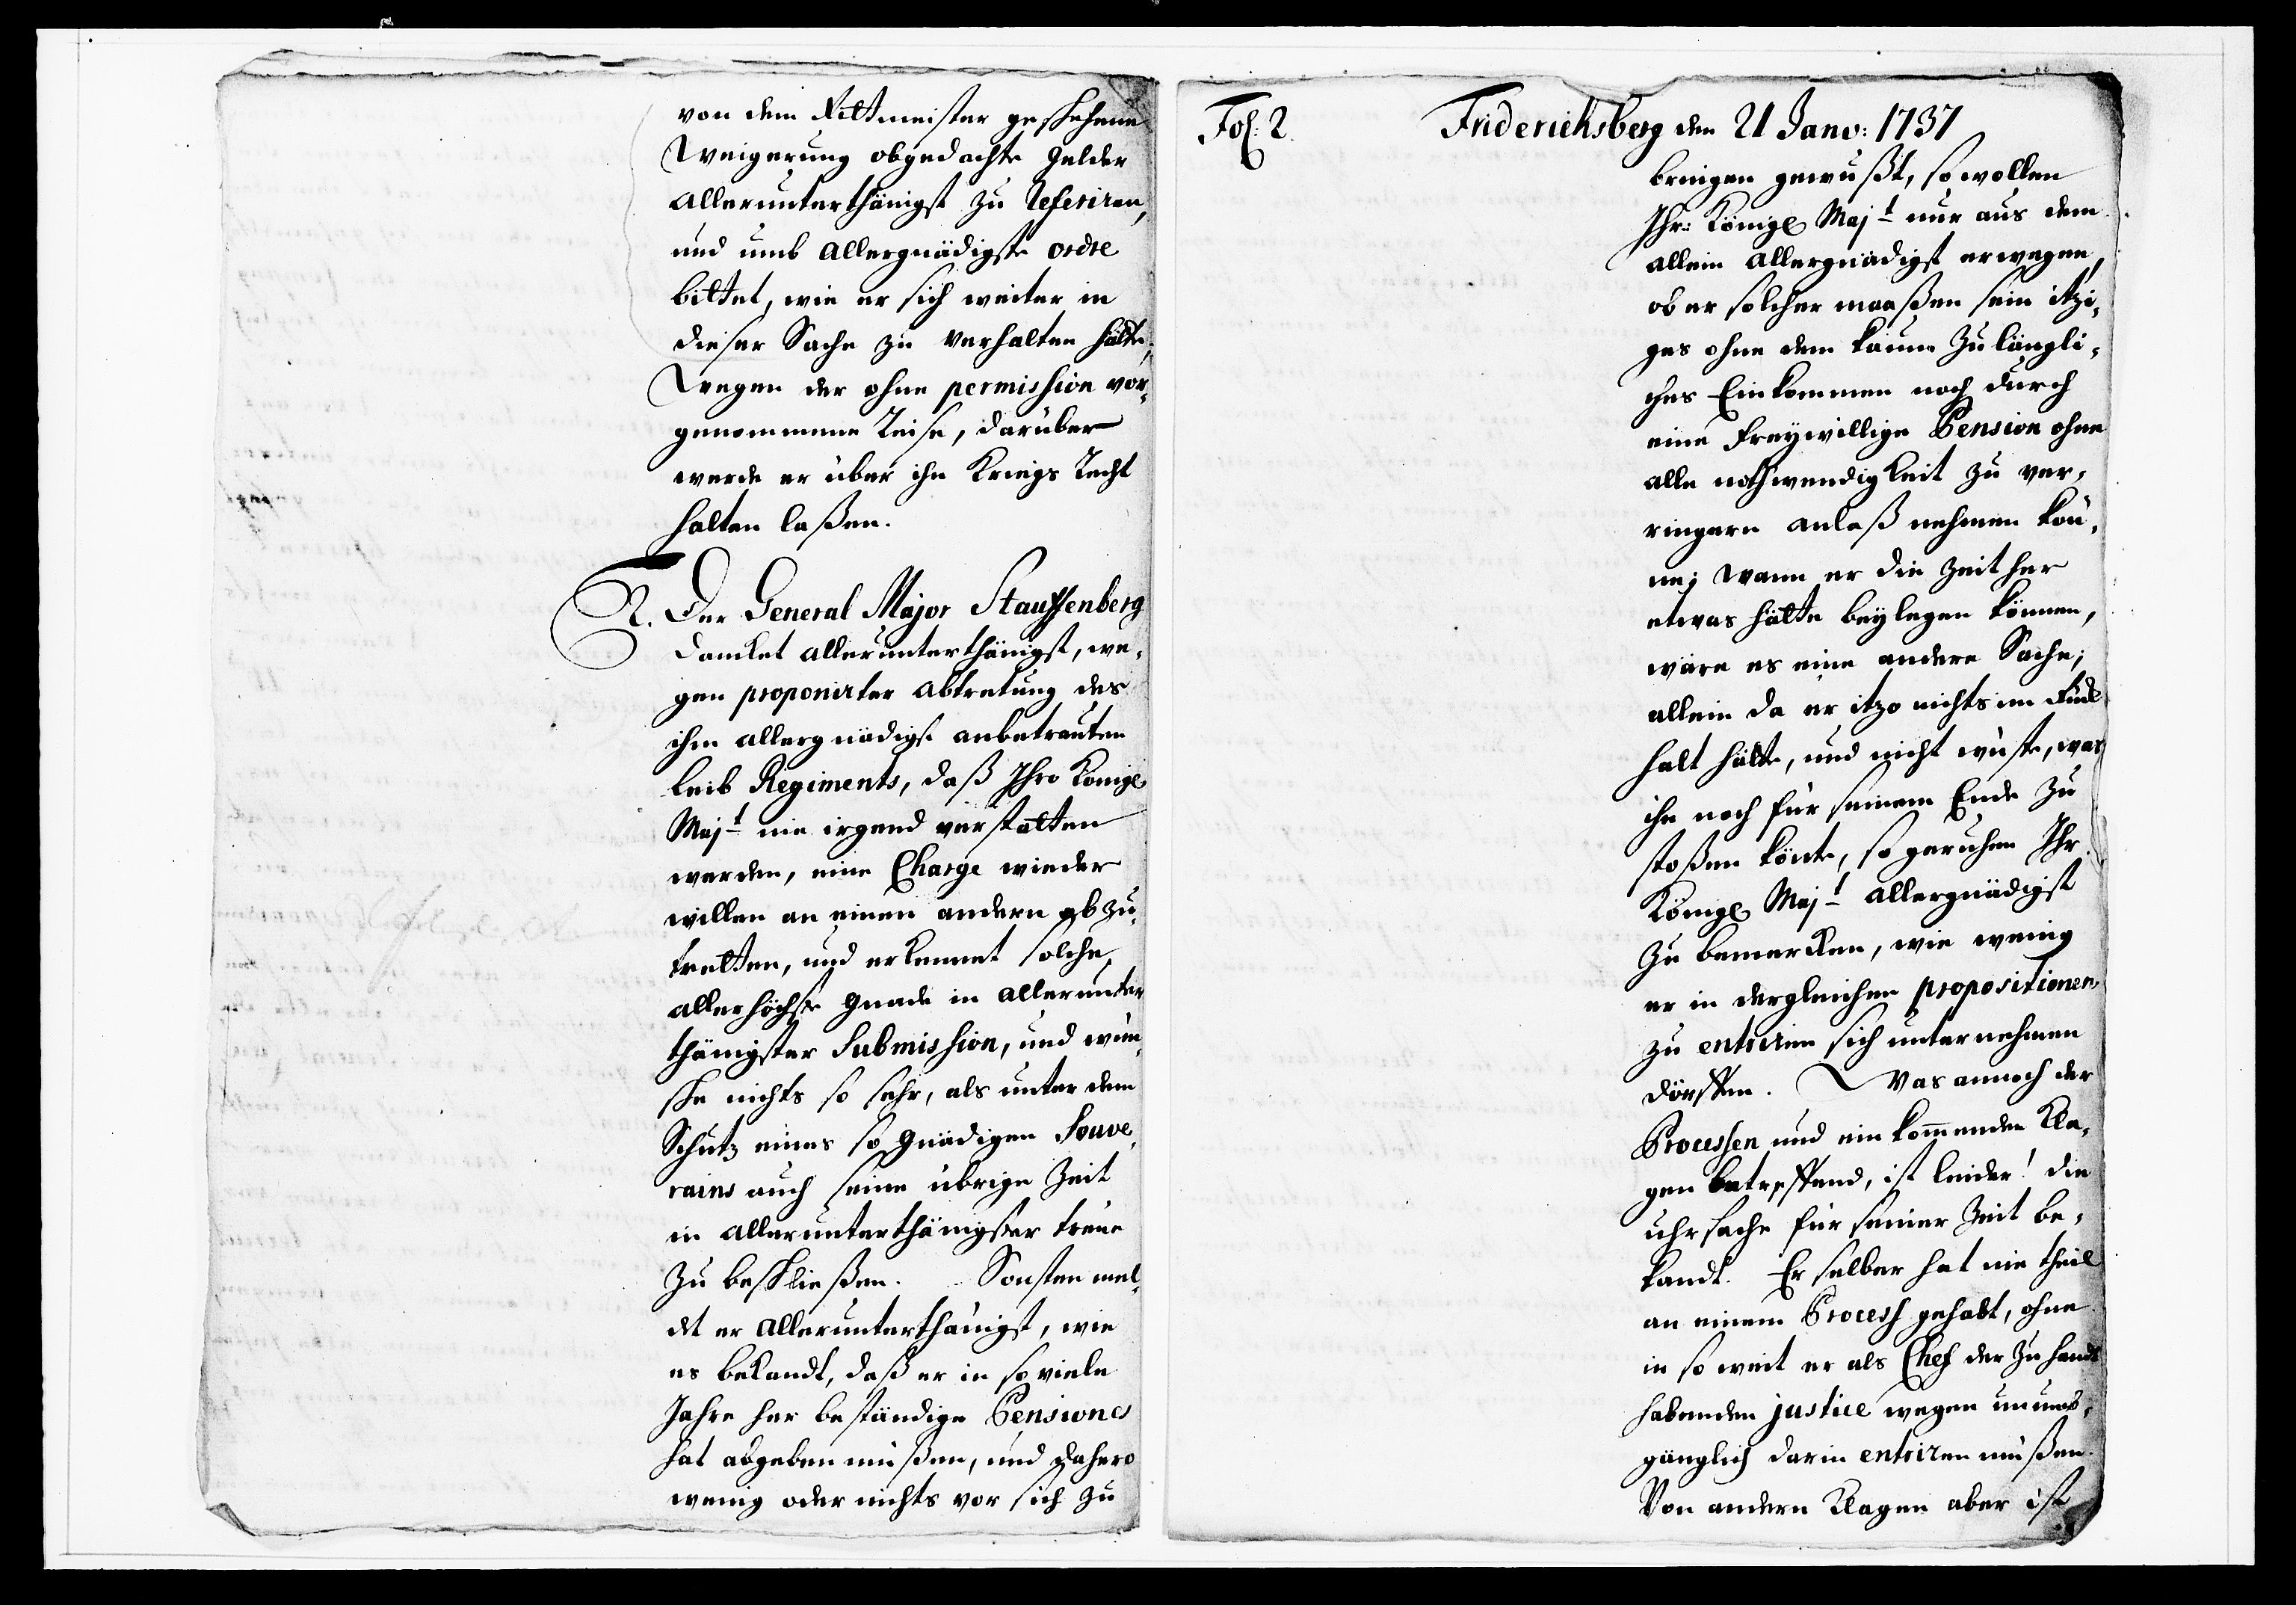 von dem Rittmeister geschehene
Weigerung obgedachte Gelder
allerunterthänigst zu referiren,
und umb allergnädigste ordre
bittet, wie er sich weiter in
dieser Sache zu verhalten hätte;
Wegen der ohne permission vor-
genommene Reise, darüber
werde er über ihn Kriegs Recht
halten laßen.
2. Der General Major Stauffenberg
dancket allerunterthänigst, we-
gen proponirter abtretung des
ihm allergnädigst anbetrauten
Leib Regiments, daß Ihro Königl
Majt nie irgend verstatten
werden, eine Charge wieder
willen an einen andern abzu-
tretten, und erkennet solche
allerhöchste Gnade in allerunter
thänigster Submission, und wün-
sche nichts so sehr, als unter dem
Schutz eines so gnädigen Souve-
rains auch seine übrige Zeit
in allerunterthänigster treue
zu beschließen. Sonsten mel-
det er allerunterthänigst, wie
es bekandt, daß er in so viele
Jahre her beständige Pensiones
hat abgeben müßen, und dahero
wenig oder nichts vor sich zu
Fol: 2. Friderichsberg den 21 Janv: 1737
bringen gewußt, so wollen
Ihr: Königl Majt nur aus dem
allein allergnädigst erwegen,
ob er solcher maaßen sein itzi-
ges ohne dem kaum zulängli-
ches Einkommen noch durch
eine freywillige Pension ohne
alle nothwendigkeit zu ver-
ringern anlaß nehmen kön-
ne; wann er die Zeit her
etwas hätte beylegen können,
wäre es eine andere Sache;
allein da er itzo nichts im
halt hätte, und nicht wüste, was
ihn noch für seinem Ende zu
stoßen könte, so geruhen Ihr
Königl Majt allergnädigst
zu bemercken, wie wenig
er in dergleichen propositionen
zu entriren sich unternehmen
dörffen. Was annoch der
Processen und einkommenden Kla-
gen betreffend, ist leider! die
uhrsache für seiner Zeit be-
kandt. Er selber hat nie theil
an einem Process gehabt, ohne
in so weit er als Chef der zu handt
habenden justice wegen unumb-
gänglich darin entriren müßen.
Von andern Klagen aber ist